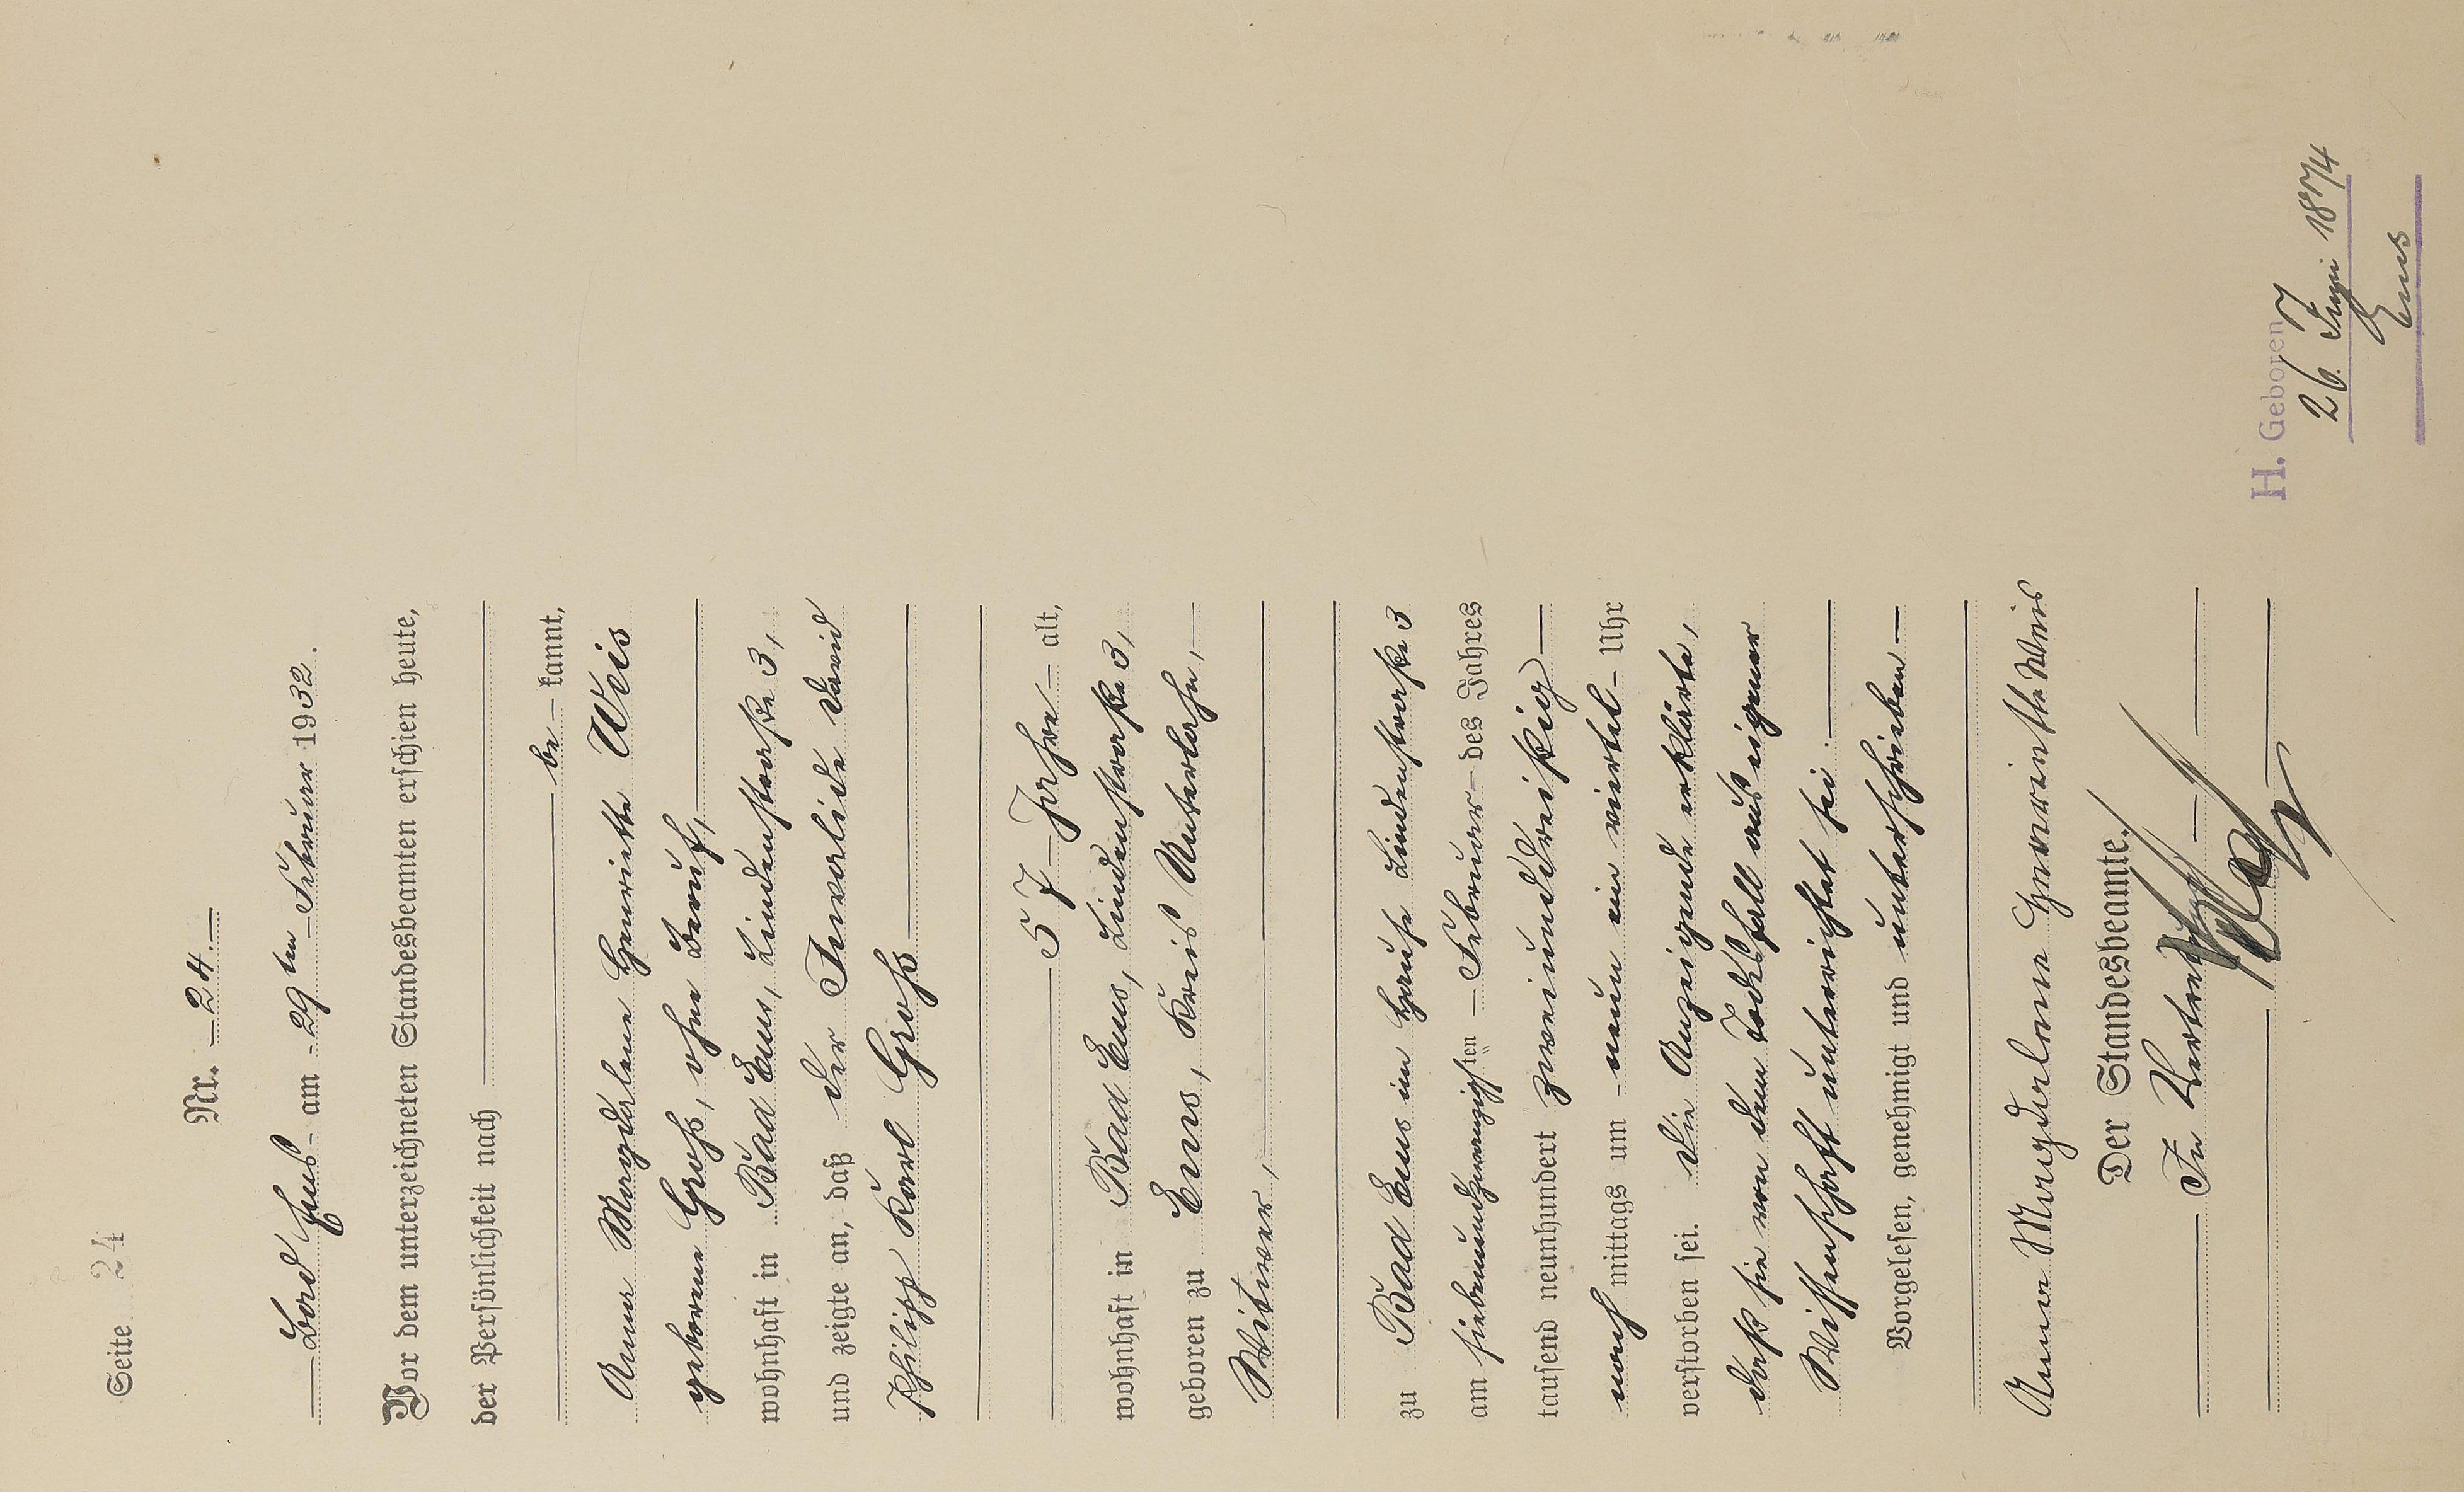 Seite 24
Nr. 24.
Bad Ems am 29ten Februar 1932.
Vor dem unterzeichneten Standesbeamten erschien heute,
der Persönlichkeit nach
be kannt,
Anna Magdalena Henriette Weis
geborene Groß, ohne Beruf,
wohnhaft in Bad Ems, Lindenstraße 3,
und zeigte an, daß der Invalide David
Philipp Karl Groß
57 Jahre alt,
wohnhaft in Bad Ems, Lindenstraße 3,
geboren zu Ems, Kreis Unterlahn,
Witwer,
zu Bad Ems im Hause Lindenstraße 3
am siebenundzwanzigsten Februar des Jahres
tausend neunhundert zweiunddreißig
nach mittags um neun ein viertel Uhr
verstorben sei. Die Anzeigende erklärte,
daß sie von dem Todesfall aus eigener
Wissenschaft unterrichtet sei.
Vorgelesen, genehmigt und unterschrieben
Anna Magdalena Henriette Weis
Der Standesbeamte.
In Vertretung
H. Geboren
26. Juni 1874
Ems